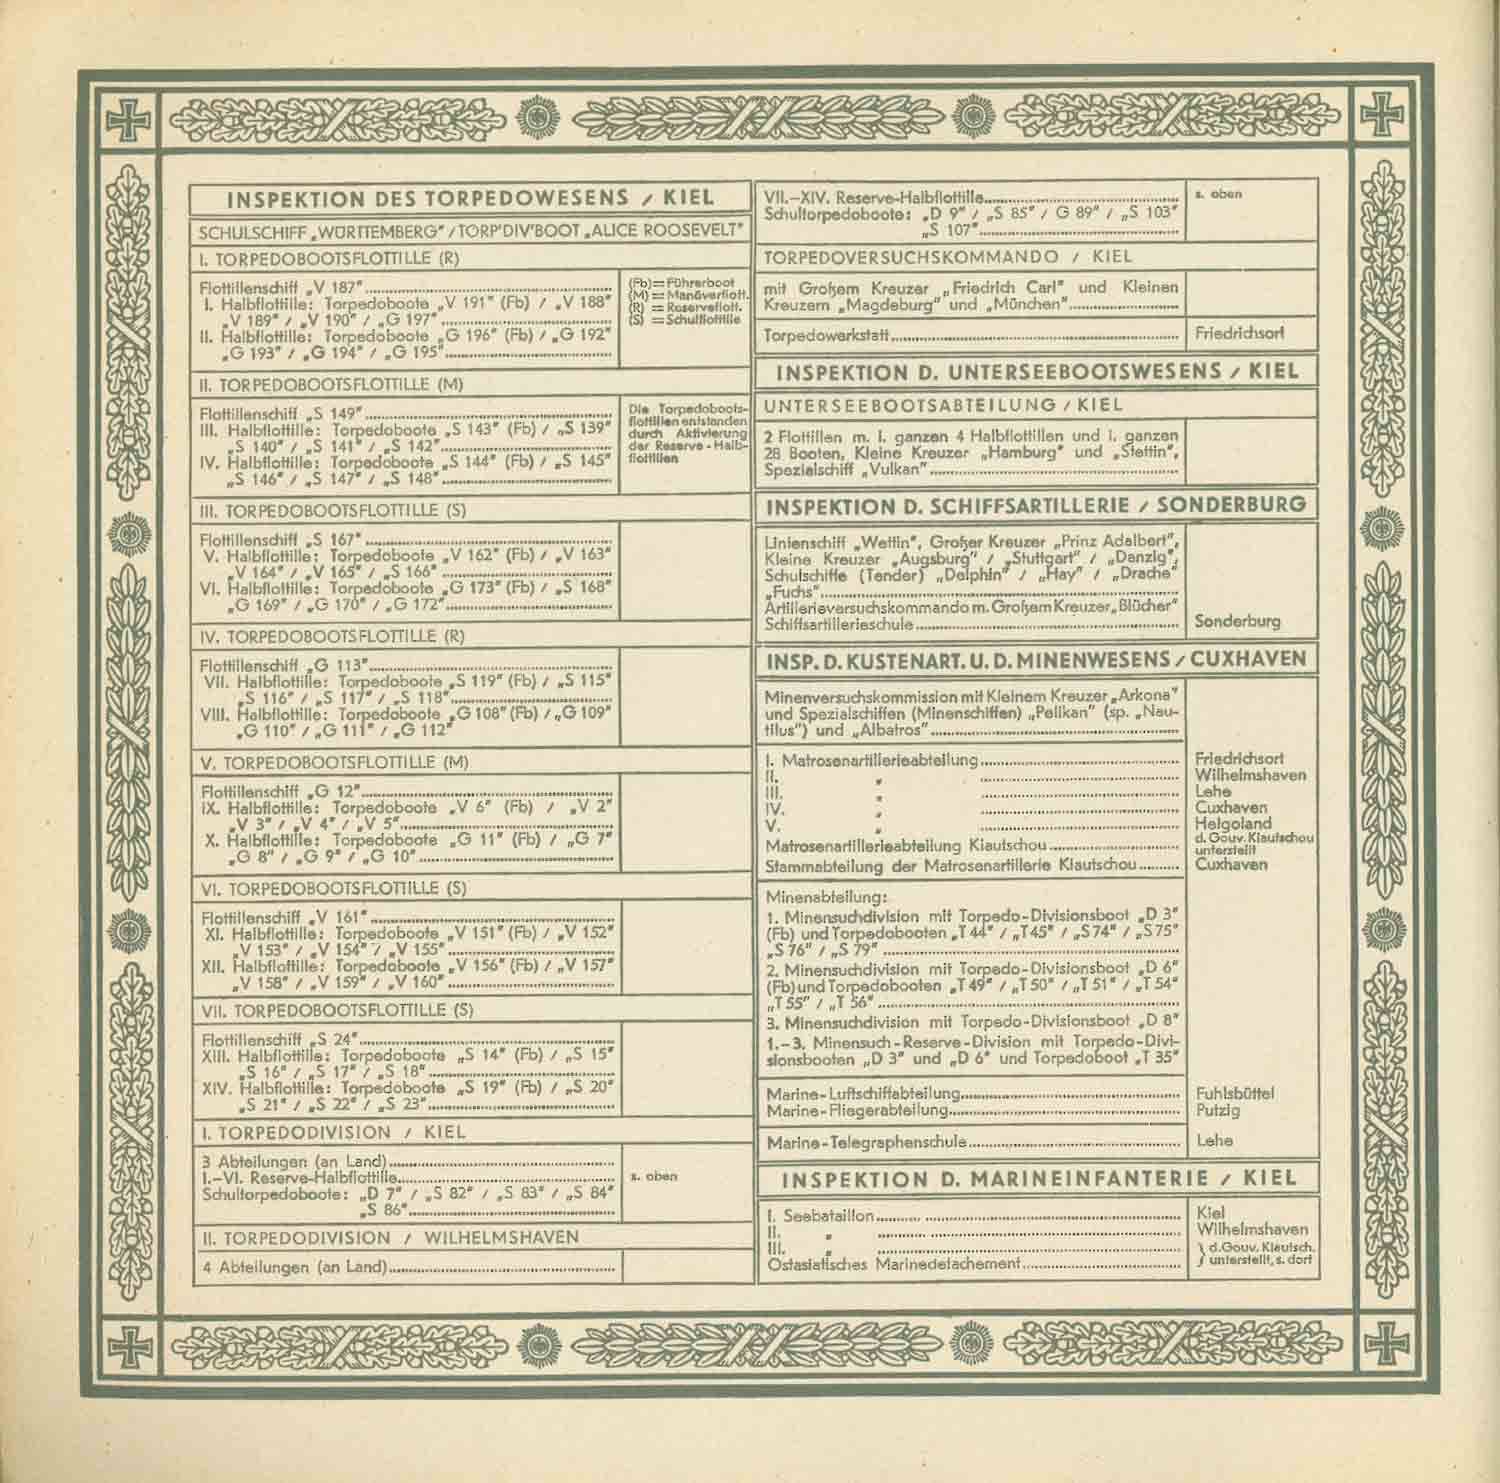 INSPEKTION DES TORPEDOWESENS / KIEL
SCHULSCHIFF „WÜRTTEMBERG“ / TORP'DIV'BOOT „ALICE ROOSEVELT“
I. TORPEDOBOOTSFLOTTILLE (R)
Flottillenschiff „V 187“
I. Halbflottille: Torpedoboote „V 191“ (Fb) / „V 188“
„V 189“ / „V 190“ / „G 197“
II. Halbflottille: Torpedoboote „G 196“ (Fb) / „G 192“
„G 193“ / „G 194“ / „G 195“
(Fb)=Führerboot
(M)=Manöverflott.
(R) =Reserveflott.
(S) =Schulflottille
II. TORPEDOBOOTSFLOTTILLE (M)
Flottillenschiff „S 149“
III. Halbflottille: Torpedoboote „S 143“ (Fb) / „S 139“
„S 140“ / „S 141“ / „S 142“
IV. Halbflottille: Torpedoboote „S 144“ (Fb) / „S 145“
„S 146“ / „S 147“ / „S 148“
Die Torpedoboots-
flottillen entstanden
durch Aktivierung
der Reserve-Halb-
flottillen
III. TORPEDOBOOTSFLOTTILLE (S)
Flottillenschiff „S 167“
V. Halbflottille: Torpedoboote „V 162“ (Fb) / „V 163“
„V 164“ / „V 165“ / „S 166“
VI. Halbflottille: Torpedoboote „G 173“ (Fb) / „S 168“
„G 169“ / „G 170“ / „G 172“
IV. TORPEDOBOOTSFLOTTILLE (R)
Flottillenschiff „G 113“
VII. Halbflottille: Torpedoboote „S 119“ (Fb) / „S 115“
„S 116“ / „S 117“ / „S 118“
VIII. Halbflottille: Torpedoboote „G 108“ (Fb) / „G 109“
„G 110“ / „G 111“ / „G 112“
V. TORPEDOBOOTSFLOTTILLE (M)
Flottillenschiff „G 12“
IX. Halbflottille: Torpedoboote „V 6“ (Fb) / „V 2“
„V 3“ / „V 4“ / „V 5“
X. Halbflottille: Torpedoboote „G 11“ (Fb) / „G 7“
„G 8“ / „G 9“ / „G 10“
VI. TORPEDOBOOTSFLOTTILLE (S)
Flottillenschiff „V 161“
XI. Halbflottille: Torpedoboote „V 151“ (Fb) / „V 152“
„V 153“ / „V 154“ / „V 155“
XII. Halbflottille: Torpedoboote „V 156“ (Fb) / „V 157“
„V 158“ / „V 159“ / „V 160“
VII. TORPEDOBOOTSFLOTTILLE (S)
Flottillenschiff „S 24“
XIII. Halbflottille: Torpedoboote „S 14“ (Fb) / „S 15“
„S 16“ / „S 17“ / „S 18“
XIV. Halbflottille: Torpedoboote „S 19“ (Fb) / „S 20“
„S 21“ / „S 22“ / „S 23“
I. TORPEDODIVISION / KIEL
3 Abteilungen (an Land)
I.–VI. Reserve-Halbflottille
Schultorpedoboote: „D 7“ / „S 82“ / „S 83“ / „S 84“
„S 86“
s. oben
II. TORPEDODIVISION / WILHELMSHAVEN
4 Abteilungen (an Land)
VII.–XIV. Reserve-Halbflottille
s. oben
Schultorpedoboote: „D 9“ / „S 85“ / G 89“ / „S 103“
„S 107“
TORPEDOVERSUCHSKOMMANDO / KIEL
mit Großem Kreuzer „Friedrich Carl“ und Kleinen
Kreuzern „Magdeburg“ und „München“
Torpedowerkstatt Friedrichsort
INSPEKTION D. UNTERSEEBOOTSWESENS / KIEL
UNTERSEEBOOTSABTEILUNG / KIEL
2 Flottillen m. i. ganzen 4 Halbflottillen und i. ganzen
28 Booten, Kleine Kreuzer „Hamburg“ und „Stettin“,
Spezialschiff „Vulkan“
INSPEKTION D. SCHIFFSARTILLERIE / SONDERBURG
Linienschiff „Wettin“, Großer Kreuzer „Prinz Adalbert“,
Kleine Kreuzer „Augsburg“ / „Stuttgart“ / „Danzig“,
Schulschiffe (Tender) „Delphin“ / „Hay“ / „Drache“
„Fuchs“
Artillerieversuchskommando m. Großem Kreuzer „Blücher“
Schiffsartillerieschule Sonderburg
INSP. D. KUSTENART. U. D. MINENWESENS / CUXHAVEN
Minenversuchskommission mit Kleinem Kreuzer „Arkona“
und Spezialschiffen (Minenschiffen) „Pelikan“ (sp. „Nau-
tilus“) und „Albatros“
I. Matrosenartillerieabteilung Friedrichsort
II. „ Wilhelmshaven
III. „ Lehe
IV. „ Cuxhaven
V. „ Helgoland
Matrosenartillerieabteilung Kiautschou d. Gouv. Kiautschou
unterstellt
Stammabteilung der Matrosenartillerie Kiautschou Cuxhaven
Minenabteilung:
1. Minensuchdivision mit Torpedo-Divisionsboot „D 3“
(Fb) und Torpedobooten „T 44“ / „T 45“ / „S 74“ / „S 75“
„S 76“ / „S 79“
2. Minensuchdivision mit Torpedo-Divisionsboot „D 6“
(Fb) und Torpedobooten „T 49“ / „T 50“ / „T 51“ / „T 54“
„T 55“ / „T 56“
3. Minensuchdivision mit Torpedo-Divisionsboot „D 8“
1.–3. Minensuch-Reserve-Division mit Torpedo-Divi-
sionsbooten „D 3“ und „D 6“ und Torpedoboot „T 35“
Marine-Luftschiffabteilung Fuhlsbüttel
Marine-Fliegerabteilung Putzig
Marine-Telegraphenschule Lehe
INSPEKTION D. MARINEINFANTERIE / KIEL
I. Seebataillon Kiel
II. „ Wilhelmshaven
III. „ } d. Gouv. Kiautsch.
Ostasiatisches Marinedetachement } unterstellt, s. dort